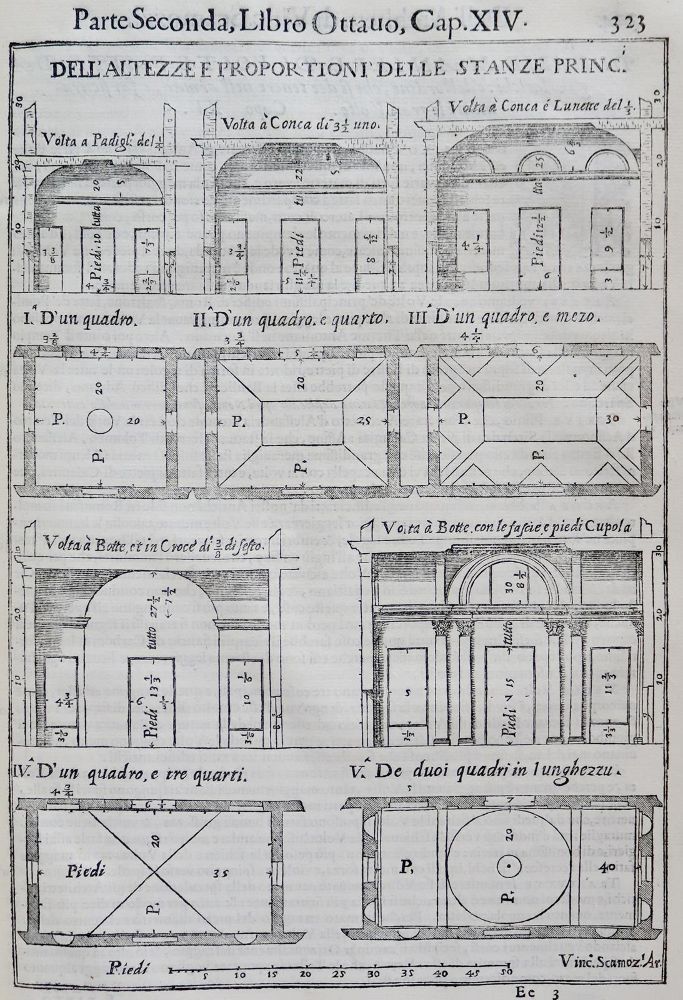 Parte Seconda, Libro Ottauo, Cap. XIV. 323
DELL'ALTEZZE E PROPORTIONI DELLE STANZE PRINC.i
Volta a Padigl.e del 1/4
Volta à Conca di 3 1/2 uno.
Volta à Conca é Lunette del 1/3
30
20
10
20
5
tutta
Piedi 10
7 1/3
22
5
tu
Piedi
11 1/4
8
25
tta
Piedi 12 1/2
4 1/4
9 1/2
3
6
30
20
10
I.a D'un quadro.
II.A D'un quadro, e quarto.
III.A D'un quadro, e mezo.
3 3/4
4 1/4
20
P. 20
P.
5
20
P. 25
P.
6
20
P. 30
P.
Volta à Botte, et in Croce di 3/8 di sesto.
Volta à Botte, con le fascie, e piedi Cupola
20
10
27 1/2
7 1/2
tutto
Piedi 13 3/4
4 3/4
10 1/6
30
8 1/2
tutto
Piedi 15
5
11 2/3
3 1/3
30
20
10
IV.A D'un quadro, e tre quarti.
V.A De duoi quadri in lunghezza.
4 3/4
20
Piedi 35
P.
5
7
20
P. 40
P.
Piedi 5 10 15 20 25 30 35 40 45 50
Vinc. Scamoz. Ar.
Ee 3